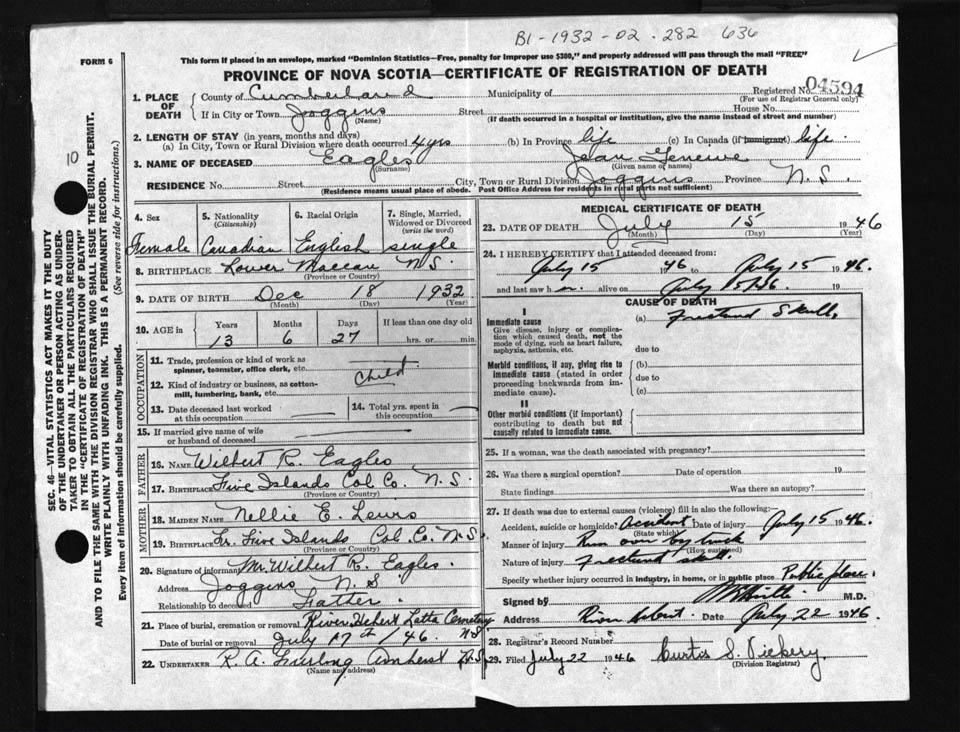 B1-1932-02-282 636
FORM 6
This form if placed in an envelope, marked "Dominion Statistics—Free, penalty for improper use $300," and properly addressed will pass through the mail "FREE"
PROVINCE OF NOVA SCOTIA—CERTIFICATE OF REGISTRATION OF DEATH
Registered No. 04594
(For use of Registrar General only)
1. PLACE OF DEATH County of Cumberland Municipality of
If in City or Town Joggins Street House No.
(Name) (If death occurred in a hospital or institution, give the name instead of street and number)
2. LENGTH OF STAY (in years, months and days)
(a) In City, Town or Rural Division where death occurred 4 yrs (b) In Province life (c) In Canada (if immigrant) life
3. NAME OF DECEASED Eagles Jean
(Surname) (Given name or names)
RESIDENCE No. Street City, Town or Rural Division Joggins Province N.S.
(Residence means usual place of abode. Post Office Address for residents in rural parts not sufficient)
4. Sex Female
5. Nationality (Citizenship) Canadian
6. Racial Origin English
7. Single, Married, Widowed or Divorced (write the word) single
8. BIRTHPLACE Lower Maccan N.S.
(Province or Country)
9. DATE OF BIRTH Dec 18 1932
(Month) (Day) (Year)
10. AGE in Years Months Days If less than one day old
13 6 27 hrs. or min.
OCCUPATION
11. Trade, profession or kind of work as spinner, teamster, office clerk, etc. Child
12. Kind of industry or business, as cotton-mill, lumbering, bank, etc.
13. Date deceased last worked at this occupation
14. Total yrs. spent in this occupation
15. If married give name of wife or husband of deceased
FATHER
16. NAME Wilbert R. Eagles
17. BIRTHPLACE Five Islands Col. Co. N.S.
(Province or Country)
MOTHER
18. MAIDEN NAME Nellie E. Lewis
19. BIRTHPLACE Five Islands Col. Co. N.S.
(Province or Country)
20. Signature of informant Mr. Wilbert R. Eagles.
Address Joggins N.S
Relationship to deceased Father.
21. Place of burial, cremation or removal River Hebert Latta Cemetery N.S.
Date of burial or removal July 17th / 46.
22. UNDERTAKER R. A. Furlong Amherst N.S.
(Name and address)
MEDICAL CERTIFICATE OF DEATH
23. DATE OF DEATH July 15 1946
(Month) (Day) (Year)
24. I HEREBY CERTIFY that I attended deceased from:
July 15 1946 to July 15 1946.
and last saw h alive on July 15/46 19
CAUSE OF DEATH
I
Immediate cause (a) Skull.
Give disease, injury or complication which caused death, not the mode of dying, such as heart failure, asphyxia, asthenia, etc.
due to
Morbid conditions, if any, giving rise to immediate cause (stated in order proceeding backwards from immediate cause).
(b)
due to
(c)
II
Other morbid conditions (if important) contributing to death but not causally related to immediate cause.
25. If a woman, was the death associated with pregnancy?
26. Was there a surgical operation? Date of operation 19
State findings Was there an autopsy?
27. If death was due to external causes (violence) fill in also the following:
Accident, suicide or homicide? Accident Date of injury July 15 1946.
(State which)
Manner of injury Run over by truck
(How sustained)
Nature of injury skull.
Specify whether injury occurred in industry, in home, or in public place Public place.
Signed by M.D.
Address River Hebert. Date July 22 1946
28. Registrar's Record Number
29. Filed July 22 1946 Curtis S. Vickery.
(Division Registrar)
10
SEC. 46—VITAL STATISTICS ACT MAKES IT THE DUTY
OF THE UNDERTAKER OR PERSON ACTING AS UNDER-
TAKER TO OBTAIN ALL THE PARTICULARS REQUIRED
IN THE "CERTIFICATE OF REGISTRATION OF DEATH"
AND TO FILE THE SAME WITH THE DIVISION REGISTRAR WHO SHALL ISSUE THE BURIAL PERMIT.
WRITE PLAINLY WITH UNFADING INK. THIS IS A PERMANENT RECORD.
Every item of information should be carefully supplied. (See reverse side for instructions.)